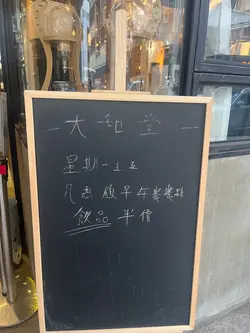 大和堂
星期一至五
凡惠顧早午餐套餐
飲品半價